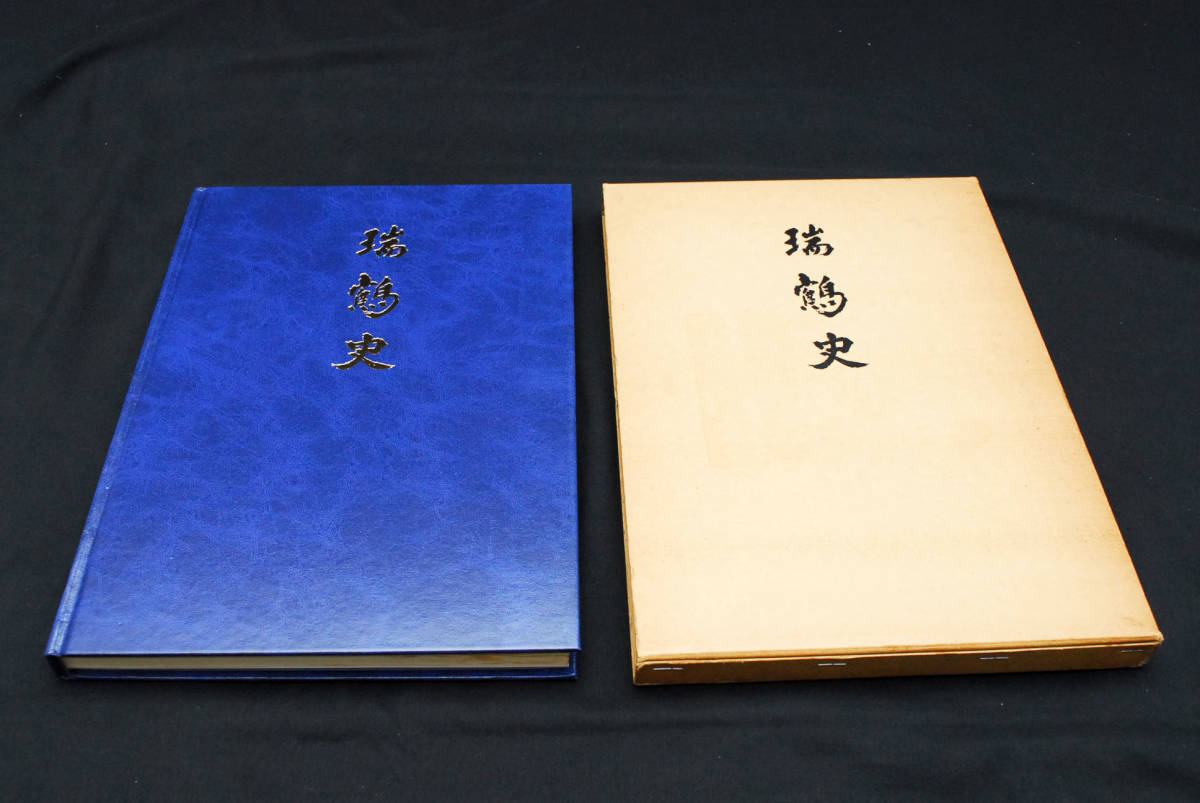 瑞鶴史
瑞鶴史